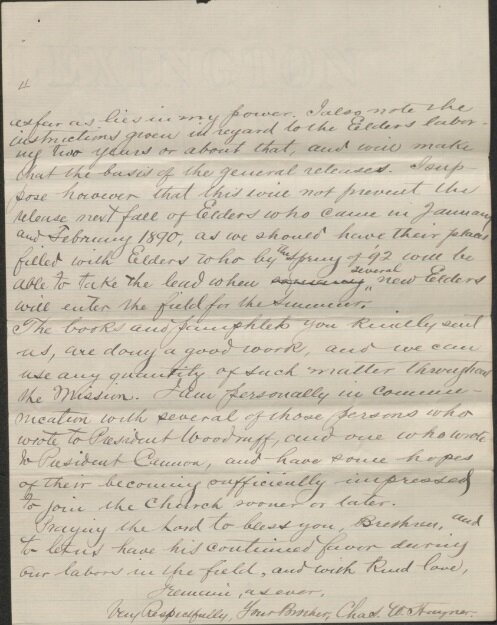 4
as far as lies in my power. I also note the
instructions given in regard to the Elders labor-
ing two years or about that, and will make
that the basis of the general releases. I sup-
pose however that this will not prevent the
release next fall of Elders who came in January
and February 1890, as we should have their places
filled with Elders who by the Spring of '92 will be
able to take the lead when several new Elders
will enter the field for the Summer.
The books and pamphlets you kindly sent
us, are doing a good work, and we can
use any quantity of such matter throughout
the Mission. I am personally in commu-
nication with several of those persons who
wrote to President Woodruff, and one who wrote
to President Cannon, and have some hopes
of their becoming sufficiently impressed
to join the Church sooner or later.
Praying the Lord to bless you, Brethren, and
to let us have his continued favor during
our labors in the field, and with kind love,
I remain, as ever,
Very Respectfully, Your Brother, Chas. W.